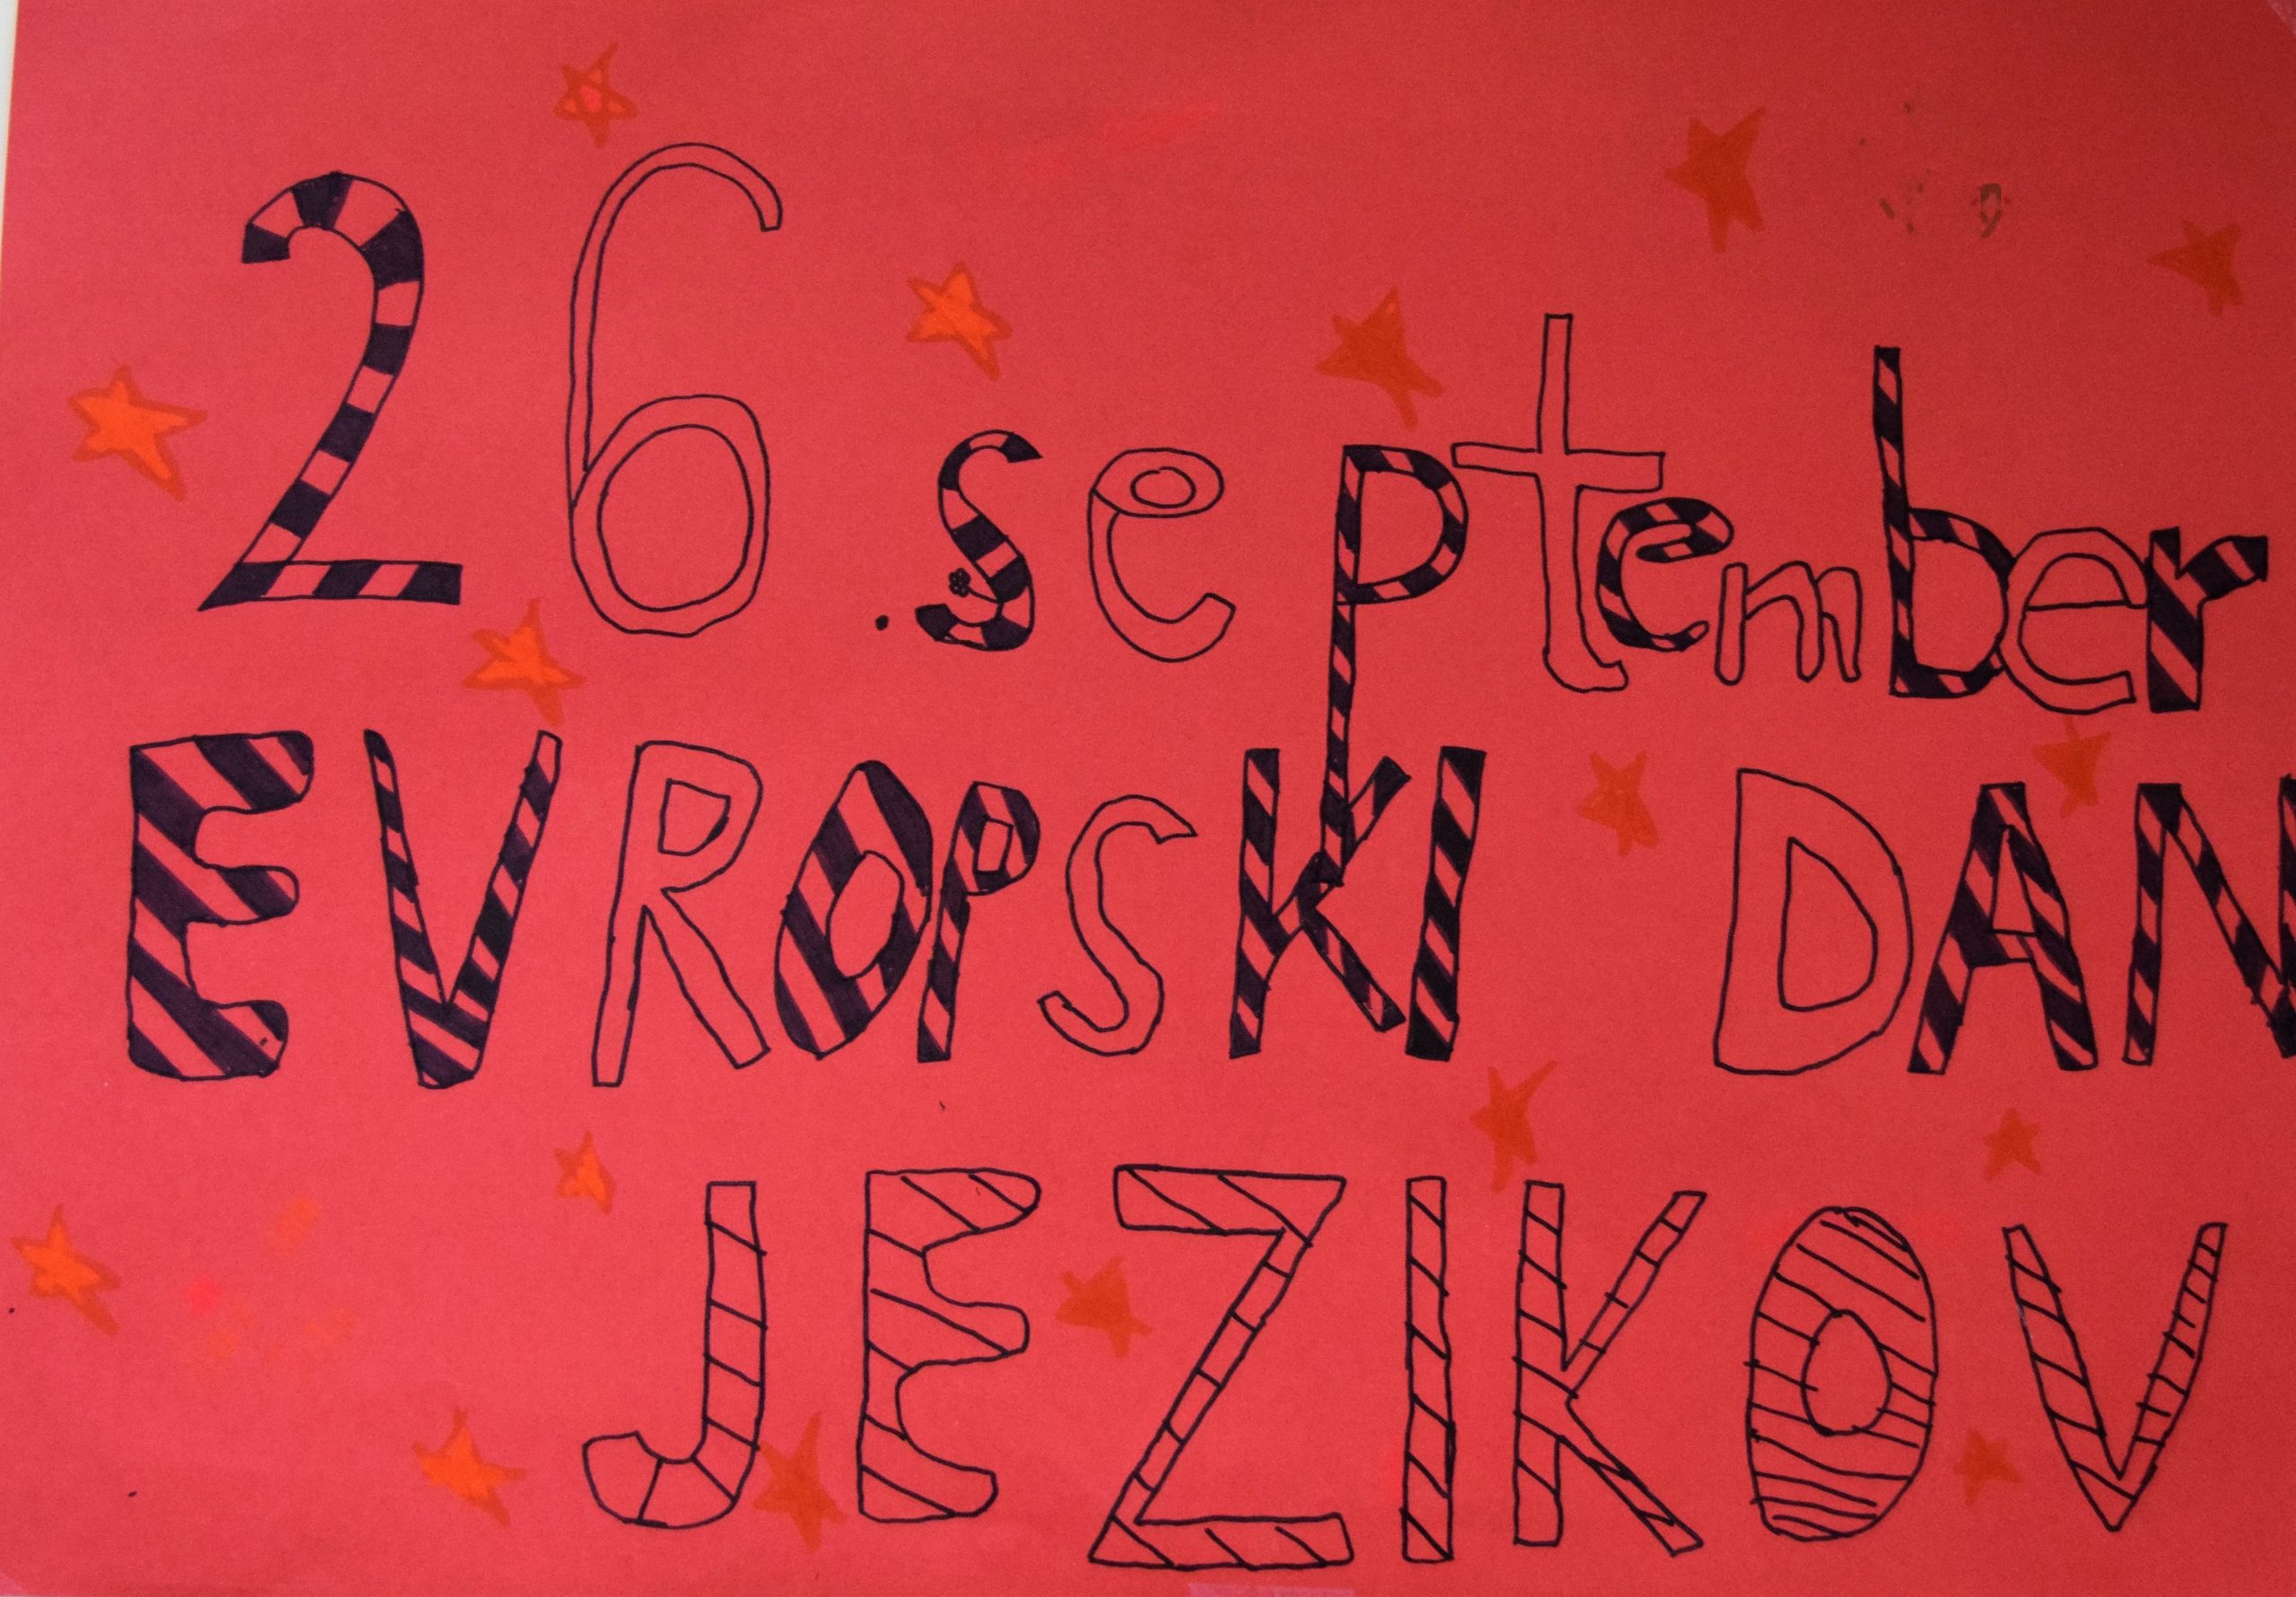 26. september
EVROPSKI DAN
JEZIKOV